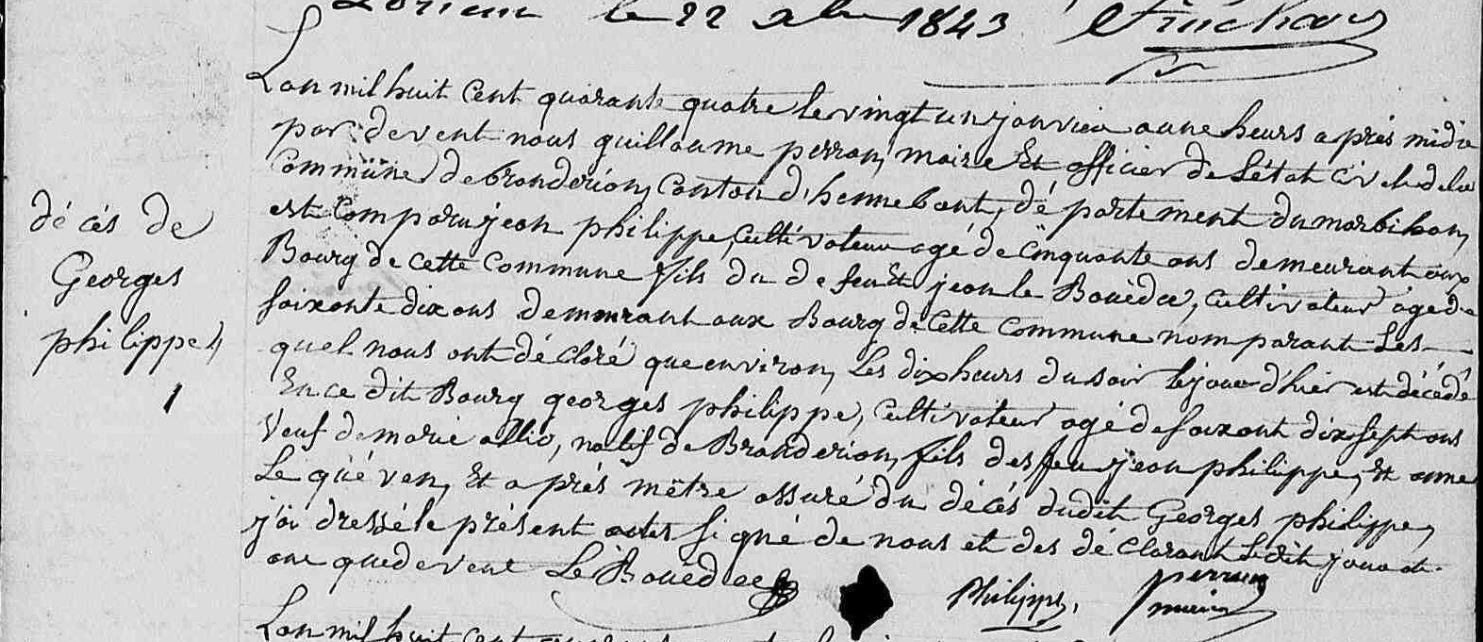 Lorient le 22 Xbre 1843
décès de
Georges
philippe
1
Lan mil huit cent quarante quatre le vingt un janvier a une heurs a prés midie
par devent nous guillaume perron, maire Et officier de L'état civil de la
Commune de branderion, Canton d'hennebont, dé partement du morbihan,
est Comparu jean philippe, cultivateur agé de cinquante ans demeurant aux
Bourg de cette Commune fils du defeunt Et jean le Bouëdec, cultivateur agé de
soixante dix ans demeurant aux Bourg de cette Commune nom parant Les-
quel nous ont dé claré que environ, Les dix heurs du soir lejour d'hier est décédé
En ce dit Bourg georges philippe, cultivateur agé de soixant dix sept ans
Veuf de marie allio, natif de Branderion, fils des feu jean philippe, Et anne
Le quéven, Et a prés mêtre assuré du décés dudit Georges philippe,
j'ai dressé le présent acte signé de nous et des dé clarant Ledit jour et
an que devent Le Bouëdec philippe, perron
maire
Lan mil huit cent